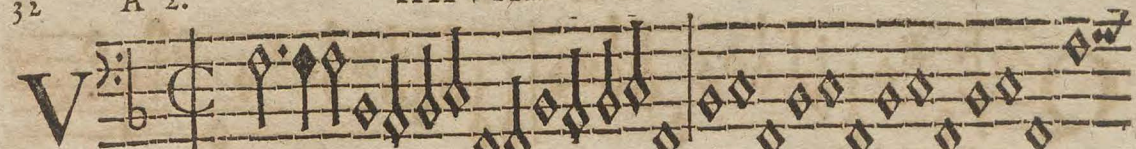 32 A 2.
V